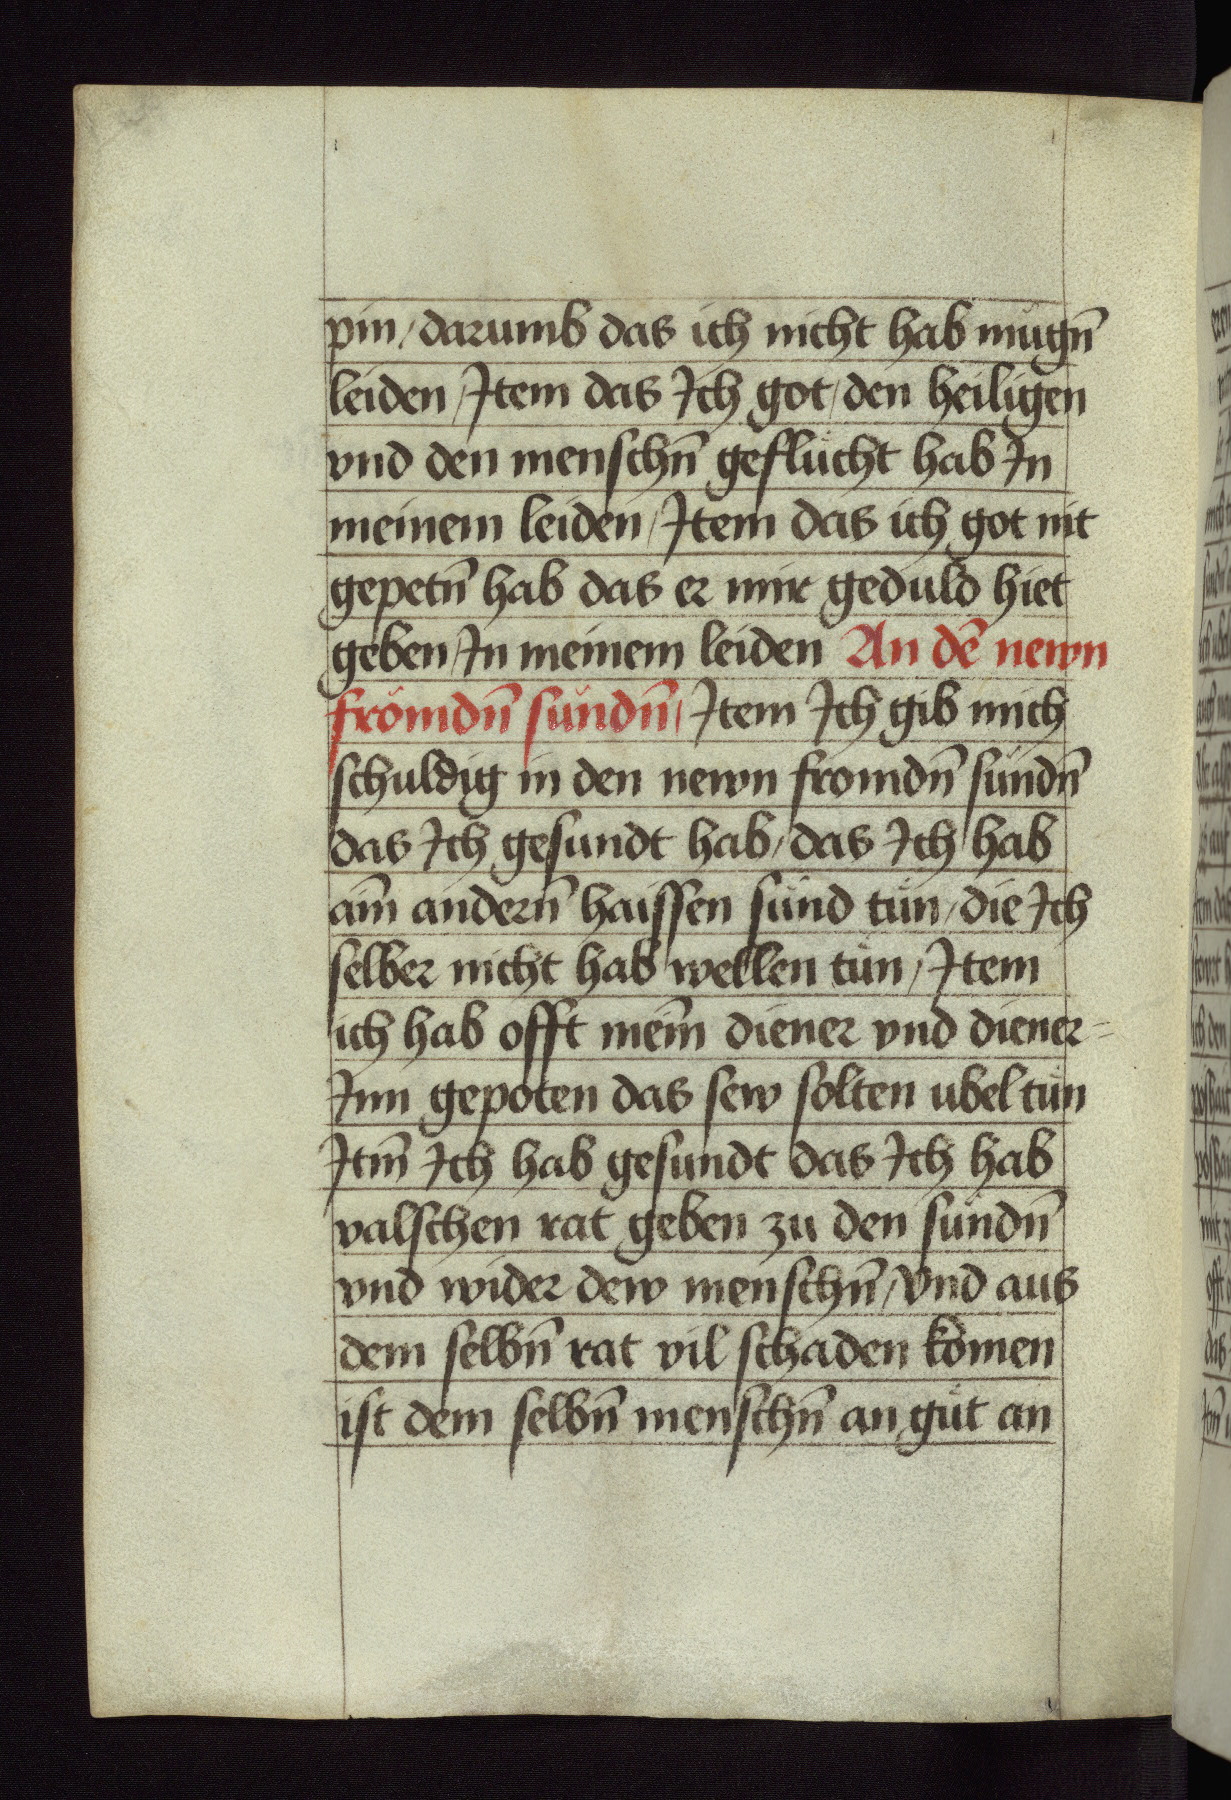 pin / darumb das ich nicht hab mugn̄
leiden / Item das Ich got / den heiligen
vnd den menschn̄ geflůcht hab In
meinem leiden / Item das ich got nit
gepetn̄ hab das er mir geduld hiet
geben / In meinem leiden An dē newn
frömdn̄ sündn̄ / Item Ich gib mich
schuldig in den newn fromdn̄ sündn̄
das Ich gesundt hab / das Ich hab
aim̄ andern̄ haissen sünd tůn / die Ich
selber nicht hab wellen tůn / Item
ich hab offt meim̄ diener vnd diener=
Inn gepoten das sew solten ubel tůn
Itm̄ Ich hab gesundt das Ich hab
valschen rat geben zu den sündn̄
vnd wider dew menschn̄ / Vnd aus
dem selbn̄ rat vil schaden komen
ist dem selbn̄ menschn̄ an gůt an